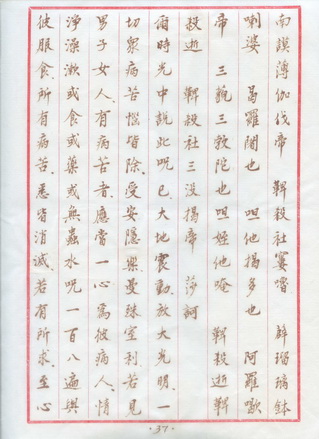 南謨薄伽伐帝　鞞殺社窶嚕　薜瑠璃鉢
喇婆　曷羅闍也　呾他揭多也　阿羅歇
帝　三藐三陀也　呾姪他唵　鞞殺逝鞞
殺逝　鞞殺社三沒揭帝　莎訶
爾時光中說此呪已、大地震動、放大光明、一
切眾病苦惱皆除、受安隱樂。曼殊室利若見
男子女人、有病苦者、應當一心為彼病人、清
淨澡漱或食或藥或無蟲水呪一百八遍與
彼服食所有病苦、悉皆消滅。若有所求、至心
·37·